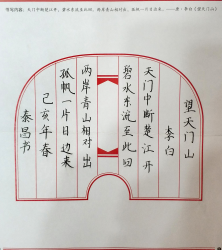 书写内容：天门中断楚江开，碧水东流至此回。两岸青山相对出，孤帆一片日边来。——唐·李白《望天门山》
望天门山
李白
天门中断楚江开
碧水东流至此回
两岸青山相对出
孤帆一片日边来
己亥年春
泰昌书